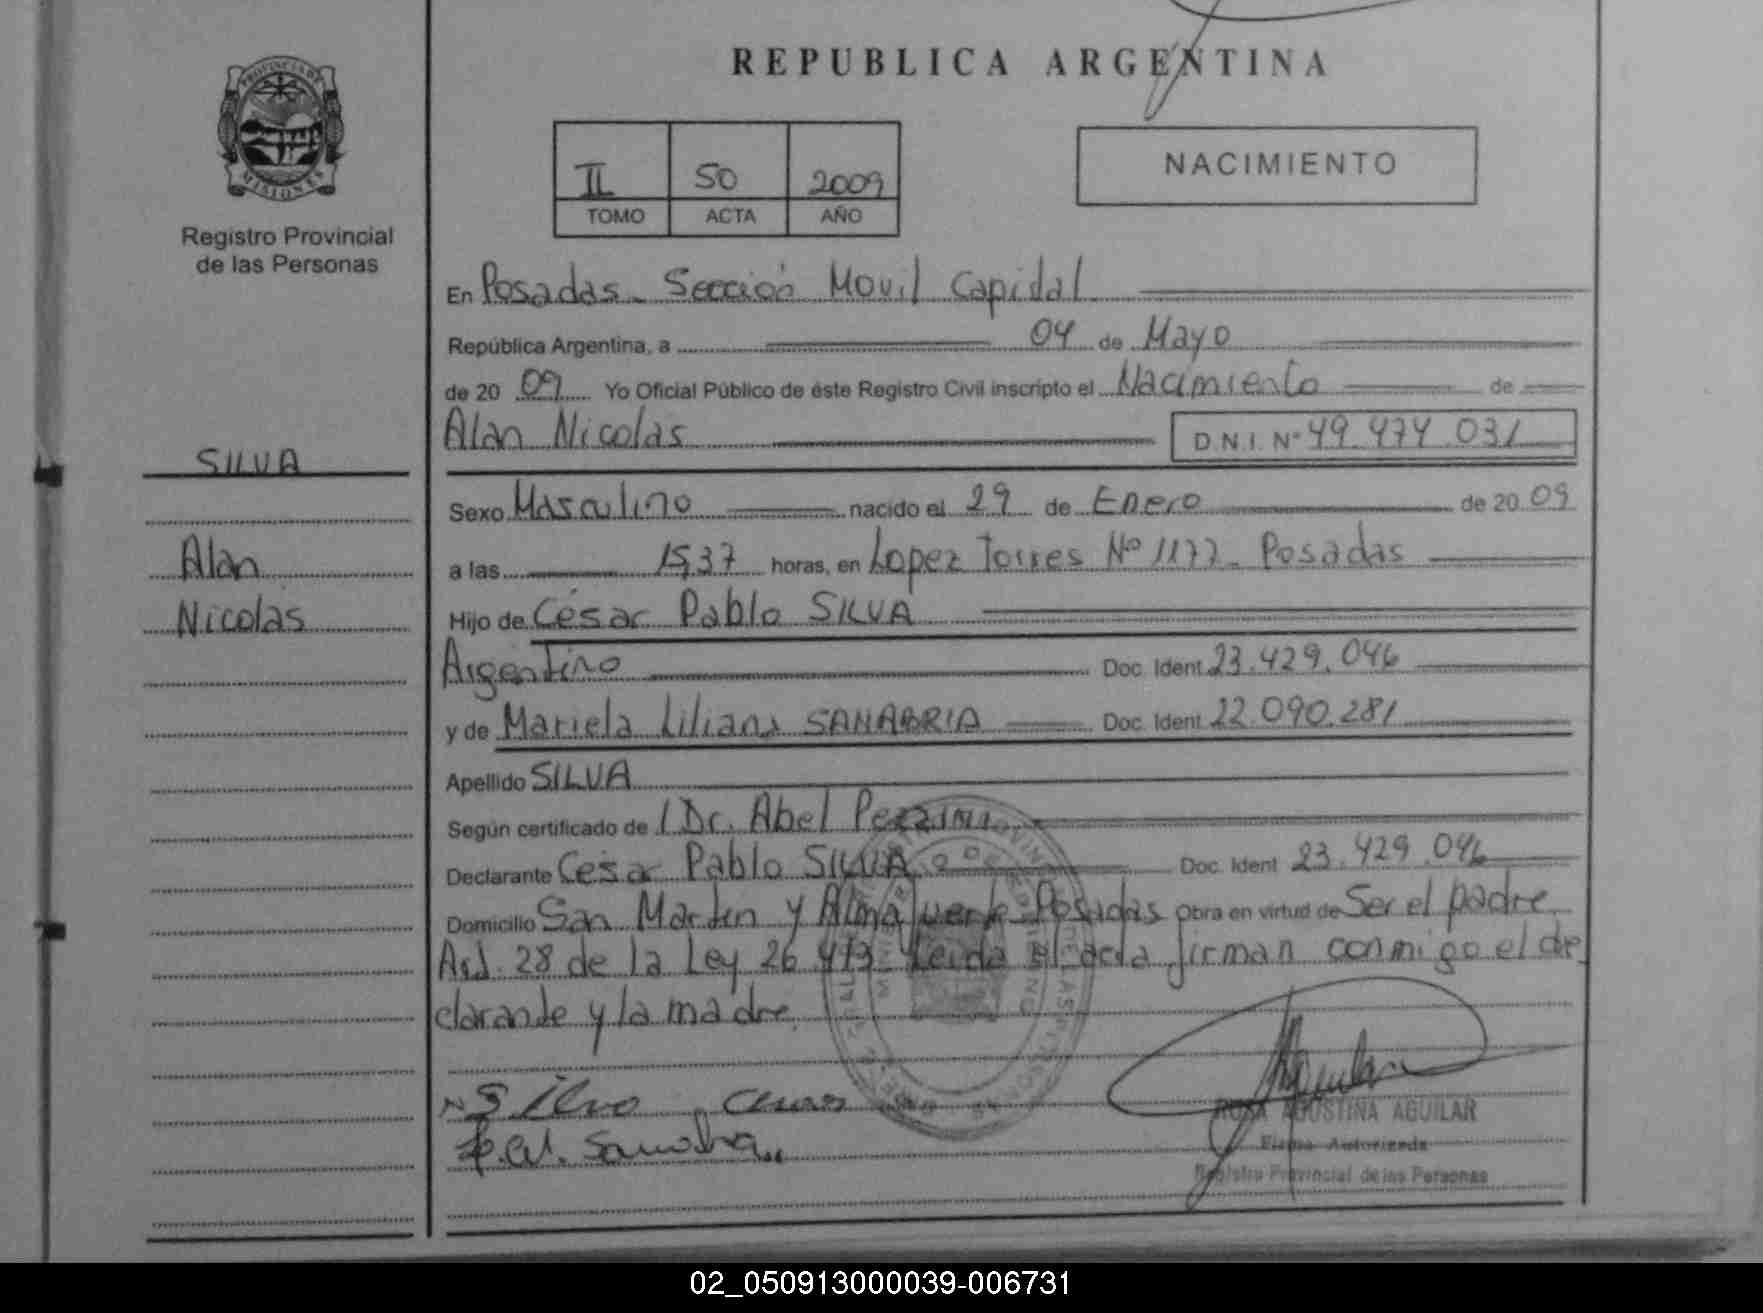 PROVINCIA DE
MISIONES
Registro Provincial
de las Personas
SILVA
Alan
Nicolás
REPUBLICA ARGENTINA
II 50 2009
TOMO ACTA AÑO
NACIMIENTO
En Posadas - Sección Movil Capital
República Argentina, a 04 de Mayo
de 20 09 Yo Oficial Público de éste Registro Civil inscripto el Nacimiento de
Alan Nicolás D.N.I. Nº 49.474.031
Sexo Masculino nacido el 29 de Enero de 20 09
a las 15,37 horas, en Lopez Torres Nº 1177 - Posadas
Hijo de César Pablo SILVA
Argentino Doc. Ident. 23.429.046
y de Mariela Liliana SANABRIA Doc. Ident. 22.090.281
Apellido SILVA
Según certificado de / Dr. Abel Pezzini
Declarante César Pablo SILVA Doc. Ident. 23.429.046
Domicilio San Martin y Almafuerte Posadas Obra en virtud de Ser el padre
Art. 28 de la Ley 26.413. Leida el acta firman conmigo el de
clarante y la madre.
ROSA AGUSTINA AGUILAR
Firma Autorizada
Registro Provincial de las Personas
02_050913000039-006731